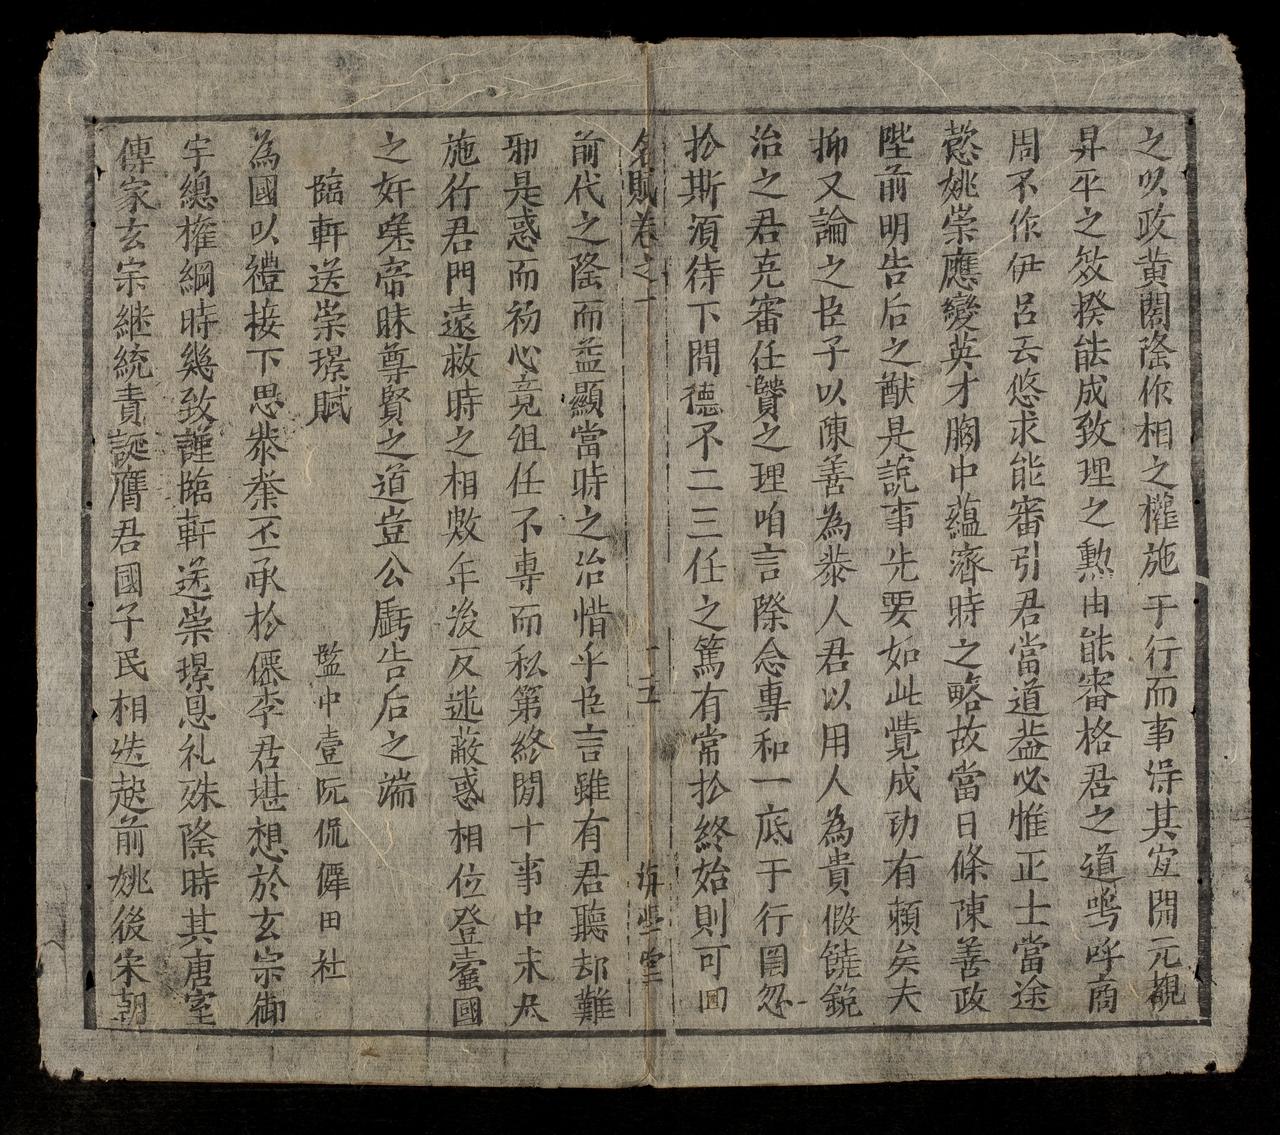 之以政黄閣隆作相之權施于行而事得其宜開元覩
昇平之效揆能成致理之勲由能審格君之道嗚呼商
周不作伊呂云悠求能審引君當道益必惟正士當途
懿姚崇應變英才胸中蘊濟時之略故當日條陳善政
陛前明告后之猷是說事先要如此覺成功有頼矣夫
抑又論之臣子以陳善為恭人君以用人為貴假饒銳
治之君克審任贒之理咱言際念專和一底于行罔忽
扵斯湏待下間德不二三任之篤有常扵終始則可回
名賦卷之一 十五 海學堂
前代之隆而益顯當時之治惜乎臣言雖有君聽却難
邪是惑而初心竟徂任不專而私第終閒十事中未尽
施行君門遠救時之相數年後反迷蔽惑相位登蠹國
之奸嘆帝昧尊賢之道豈公虧告后之端
臨軒送崇璟賦 監中壹阮侃僤田社
為國以禮接下思恭粦丕承扵僊李君堪想於玄宗御
宇總權綱時幾致謹臨軒送崇璟恩礼殊隆時其唐室
傳家玄宗継統責誕膺君國子民相迭起前姚後宋朝